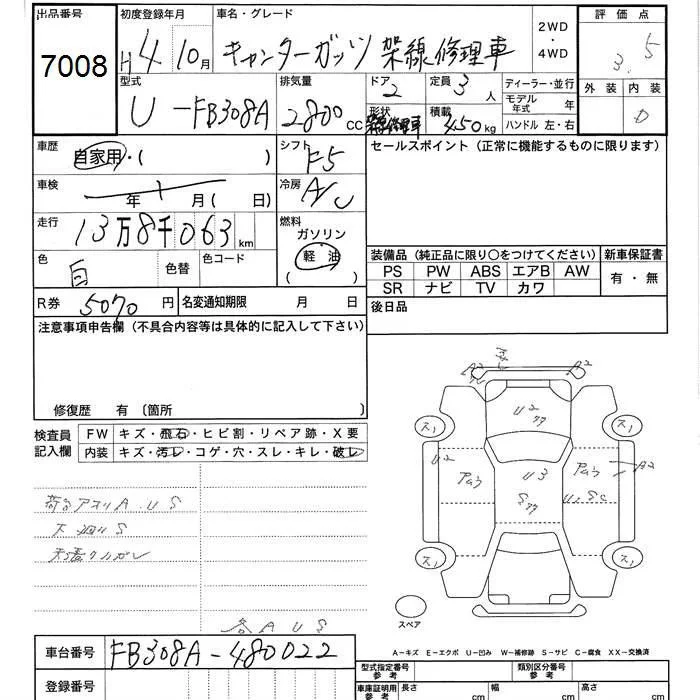 出品番号 初度登録年月 車名・グレード 2WD・4WD 評価点
7008 H4 10月 キャンターガッツ 架線修理車 3.5
型式 排気量 ドア 定員 ディーラー・並行 外装 内装
U-FB308A 2800cc 2 3人 モデル年式 年 D
形状 積載 ハンドル 左・右
架線修理車 450kg
車歴 シフト セールスポイント（正常に機能するものに限ります）
自家用・( ) F5
車検 冷房
年 月( 日) A/C
走行 燃料
13万8千063km ガソリン
軽油
( )
色 色替 色コード
白
装備品（純正品に限り○をつけてください） 新車保証書
PS PW ABS エアB AW 有・無
SR ナビ TV カワ
R券 5070円 名変通知期限 月 日 後日品
注意事項申告欄（不具合内容等は具体的に記入して下さい）
修復歴 有 〔箇所 〕
検査員記入欄 FW キズ・飛石・ヒビ割・リペア跡・X要
内装 キズ・汚レ・コゲ・穴・スレ・キレ・破レ
A2 A2
U2
ス1 ス1
U2 U3 A2
ス1 ス1
A U S
S
各 A U S
スペア
A-キズ E-エクボ U-凹み W-補修跡 S-サビ C-腐食 XX-交換済
車台番号 FB308A-480022
登録番号
型式指定番号 参考 類別区分番号 参考
車庫証明用 参考 長さ cm 幅 cm 高さ cm